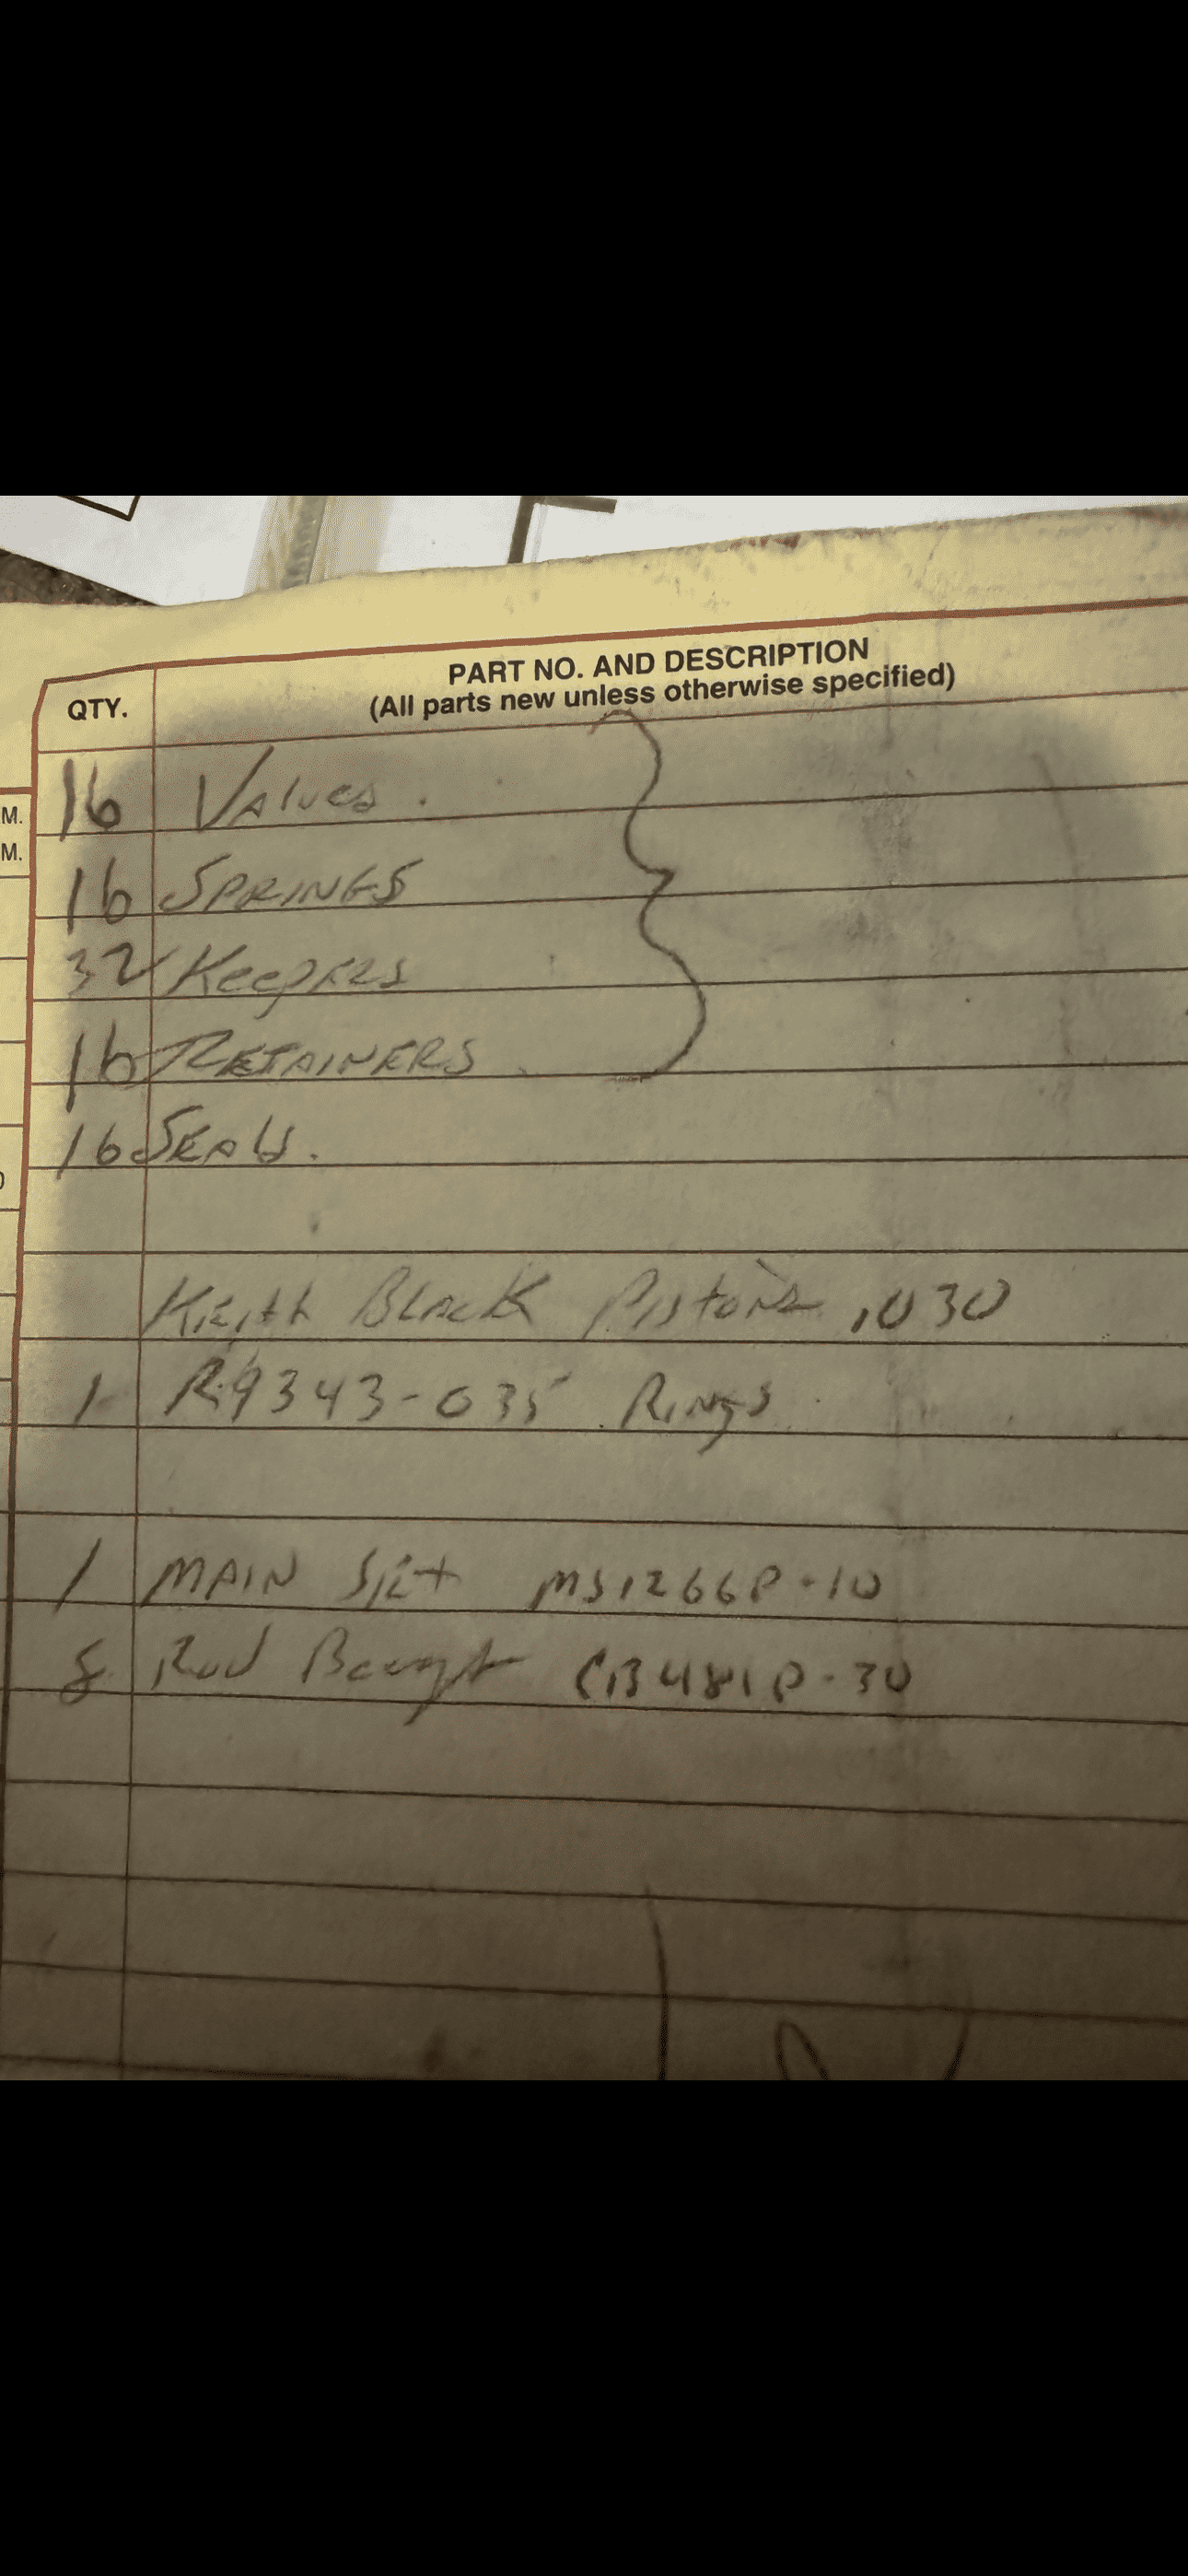 PART NO. AND DESCRIPTION
QTY. (All parts new unless otherwise specified)
M.
16 Valves.
M.
16 SPRINGS
32 Keepers
16 RETAINERS
16 SEALS.
Keith Black Pistons .030
1 R-9343-035 Rings
1 MAIN Set MS1266P-10
8 Rod CB481P-30